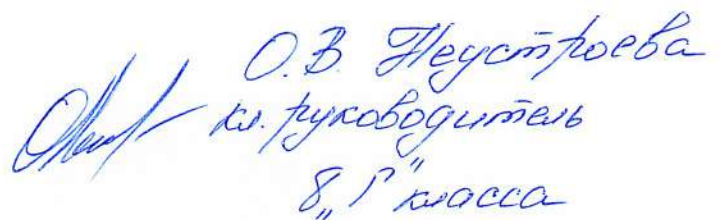 О.В. Неустроева
кл. руководитель
8 „Г" класса